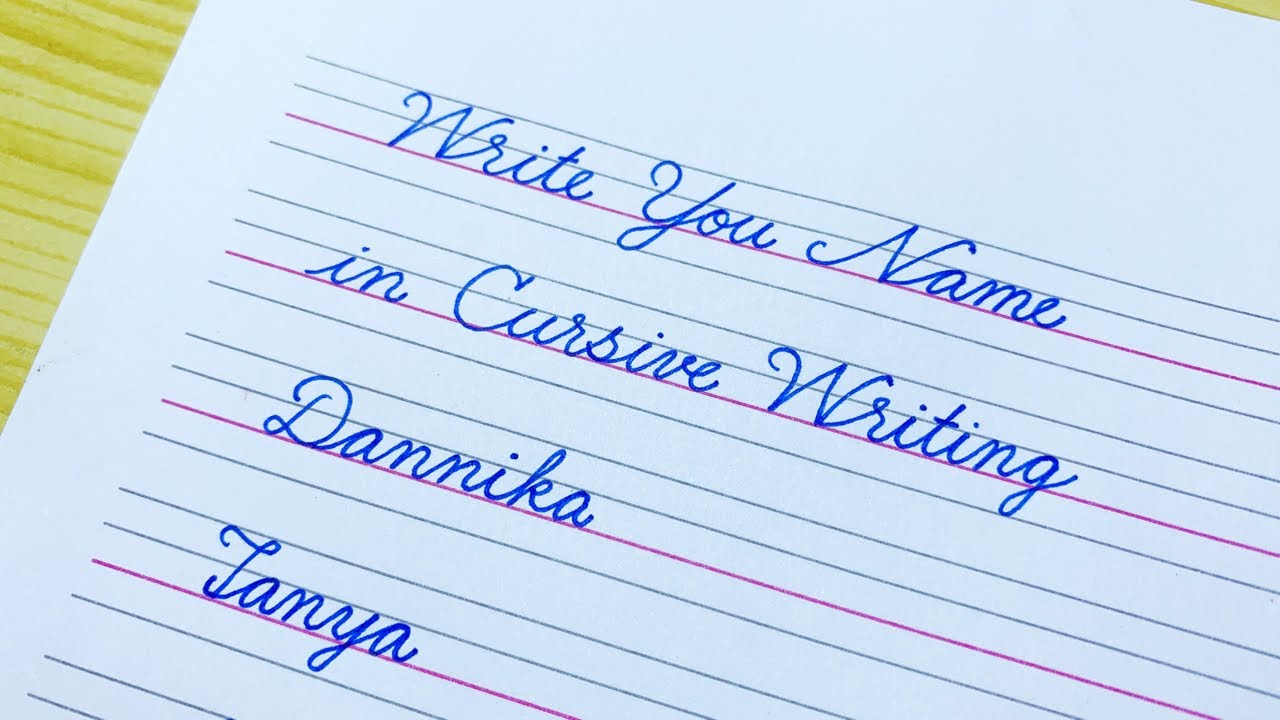 Write You Name
in Cursive Writing
Dannika
Tanya